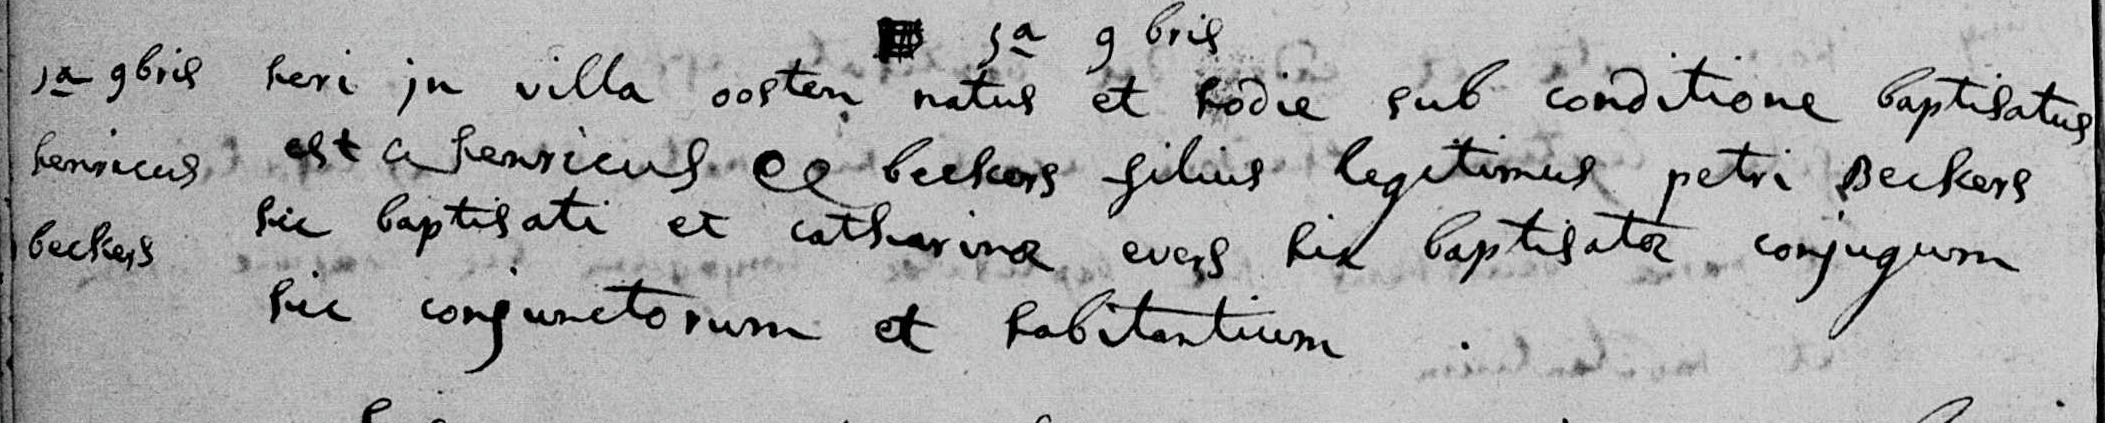 5a 9bris
5a 9bris heri jn villa oosten natus et hodie sub conditione baptisatus
henricus est henricus beckers filius legitimus petri Beckers
beckers hic baptisati et catharinæ evers hic baptisatæ conjugum
hic conjunctorum et habitantium .